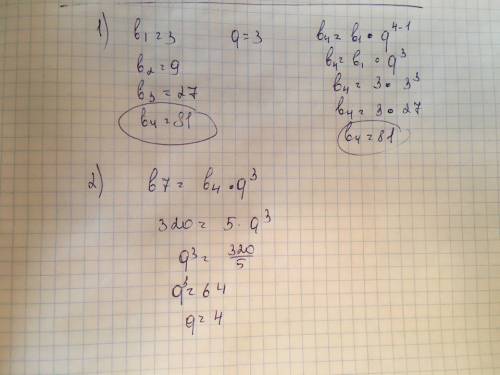 1) b₁ = 3 q = 3
b₂ = 9
b₃ = 27
b₄ = 81
b₄ = b₁ • q⁴⁻¹
b₄ = b₁ • q³
b₄ = 3 • 3³
b₄ = 3 • 27
b₄ = 81
2) b7 = b₄ • q³
320 = 5 · q³
q³ = 320/5
q³ = 64
q = 4